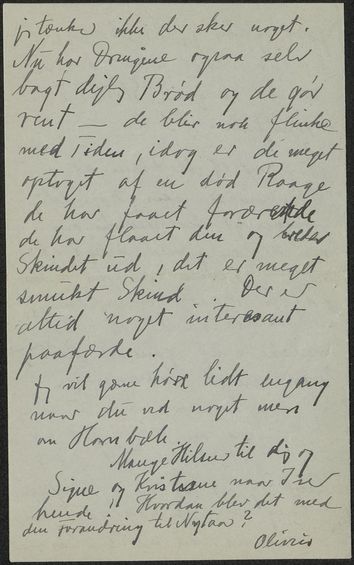 jeg tænker ikke der sker noget.
Nu har Drengene ogsaa selv
bagt dejlig Brød og de gør
rent — de blir nok flinke
med Tiden, idag er de meget
optaget af en død Raage
de har faaet forærende
de har flaaet den og
Skindet ud, det er meget
smukt Skind. Der er
altid noget interesant
paafærde.
Jeg vil gerne høre lidt engang
naar du ved noget mere
om Hornbæk.
Mange Hilsner til dig og
Signe og Kristiane naar I ser
hende, Hvordan blev det med
den Forandring til Nytaar?